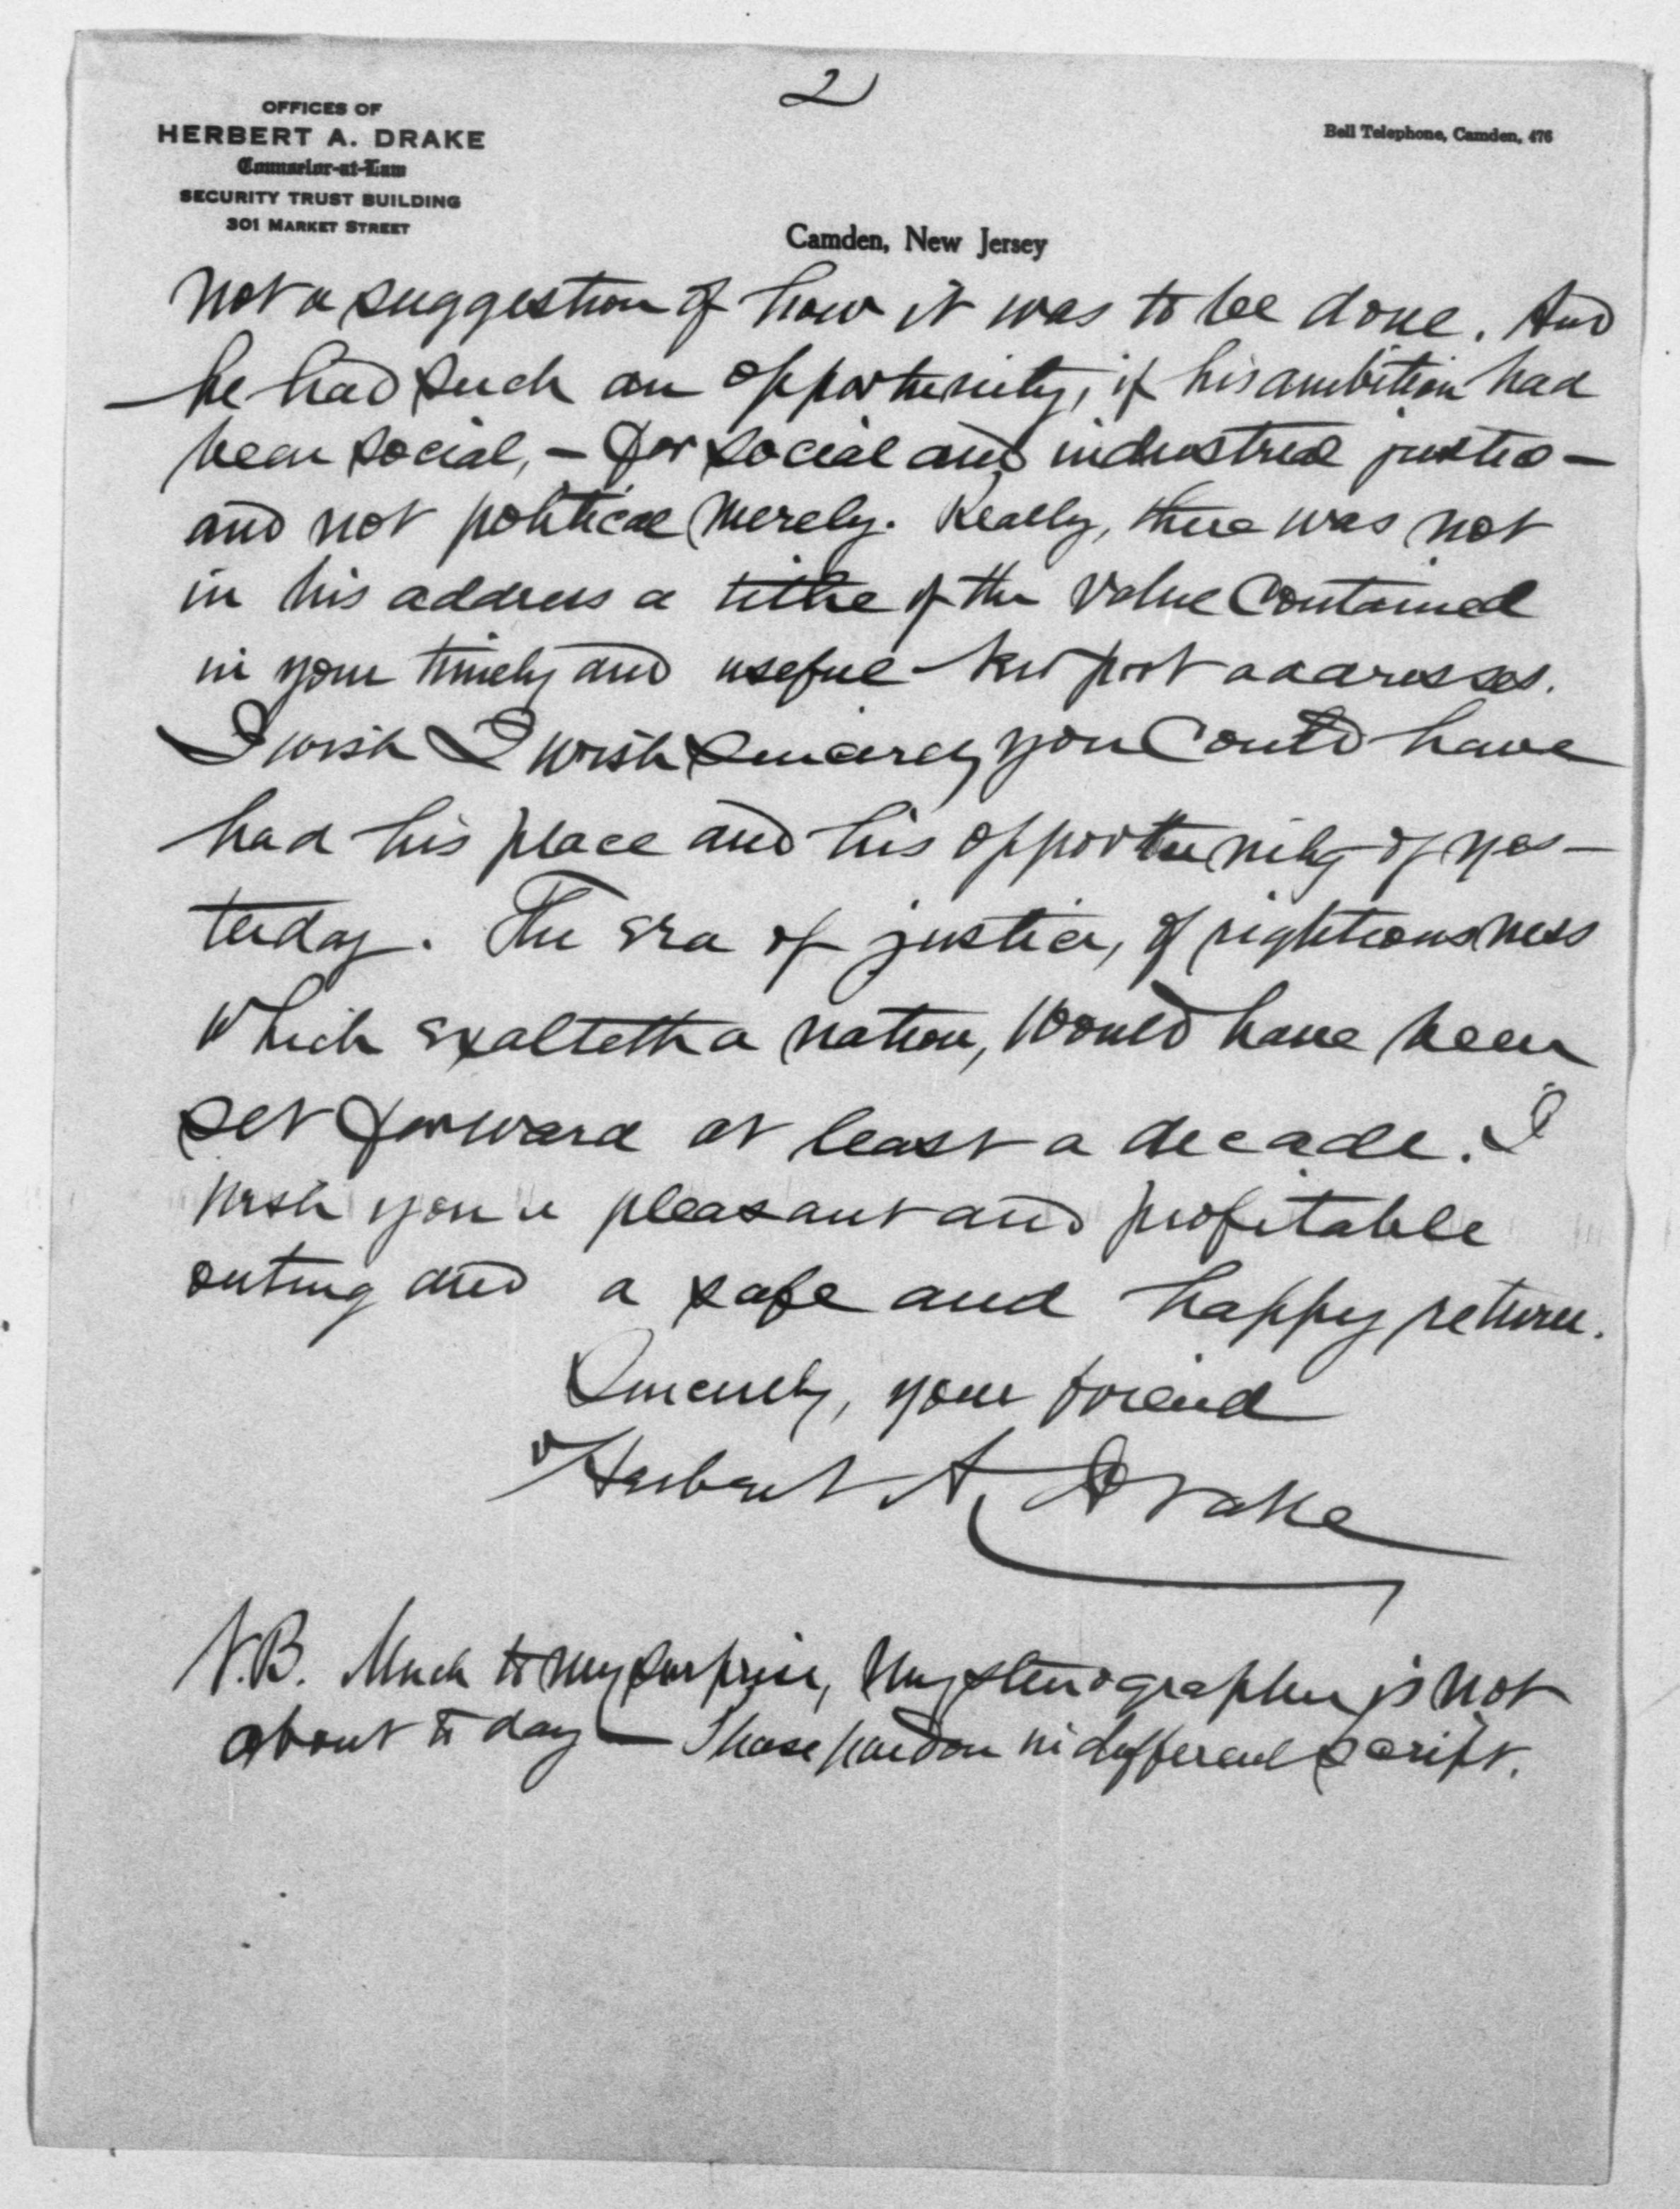 2
OFFICES OF
HERBERT A. DRAKE
Counselor-at-Law
SECURITY TRUST BUILDING
301 MARKET STREET
Bell Telephone, Camden, 476
Camden, New Jersey
not a suggestion of how it was to be done. And
he had such an opportunity, if his ambition had
been social, - for social and industrial justice -
and not political merely. Really, there was not
in his address a tithe of the value contained
in your timely and useful Newport addresses.
I wish I wish sincerely you could have
had his place and his opportunity of yes-
terday. The era of justice, of righteousness
which exalteth a nation, would have been
set forward at least a decade. I
wish you a pleasant and profitable
outing and a safe and happy return.
Sincerely, your friend
Herbert A. Drake
N.B. Much to my surprise, my stenographer is not
about to day - Please pardon indifferent script.